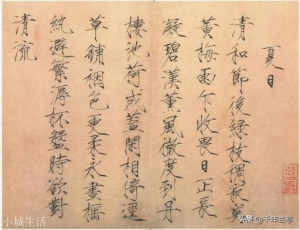 夏日
清和節後綠枝稠寂寞
黃梅雨乍收畏日正長
凝碧漢薰風微度到丹
樓池荷成蓋閑相倚逕
草鋪裀色更柔永晝搖
紈避繁溽杯盤時欲對
清流
小城生活
头条 @千年兰亭